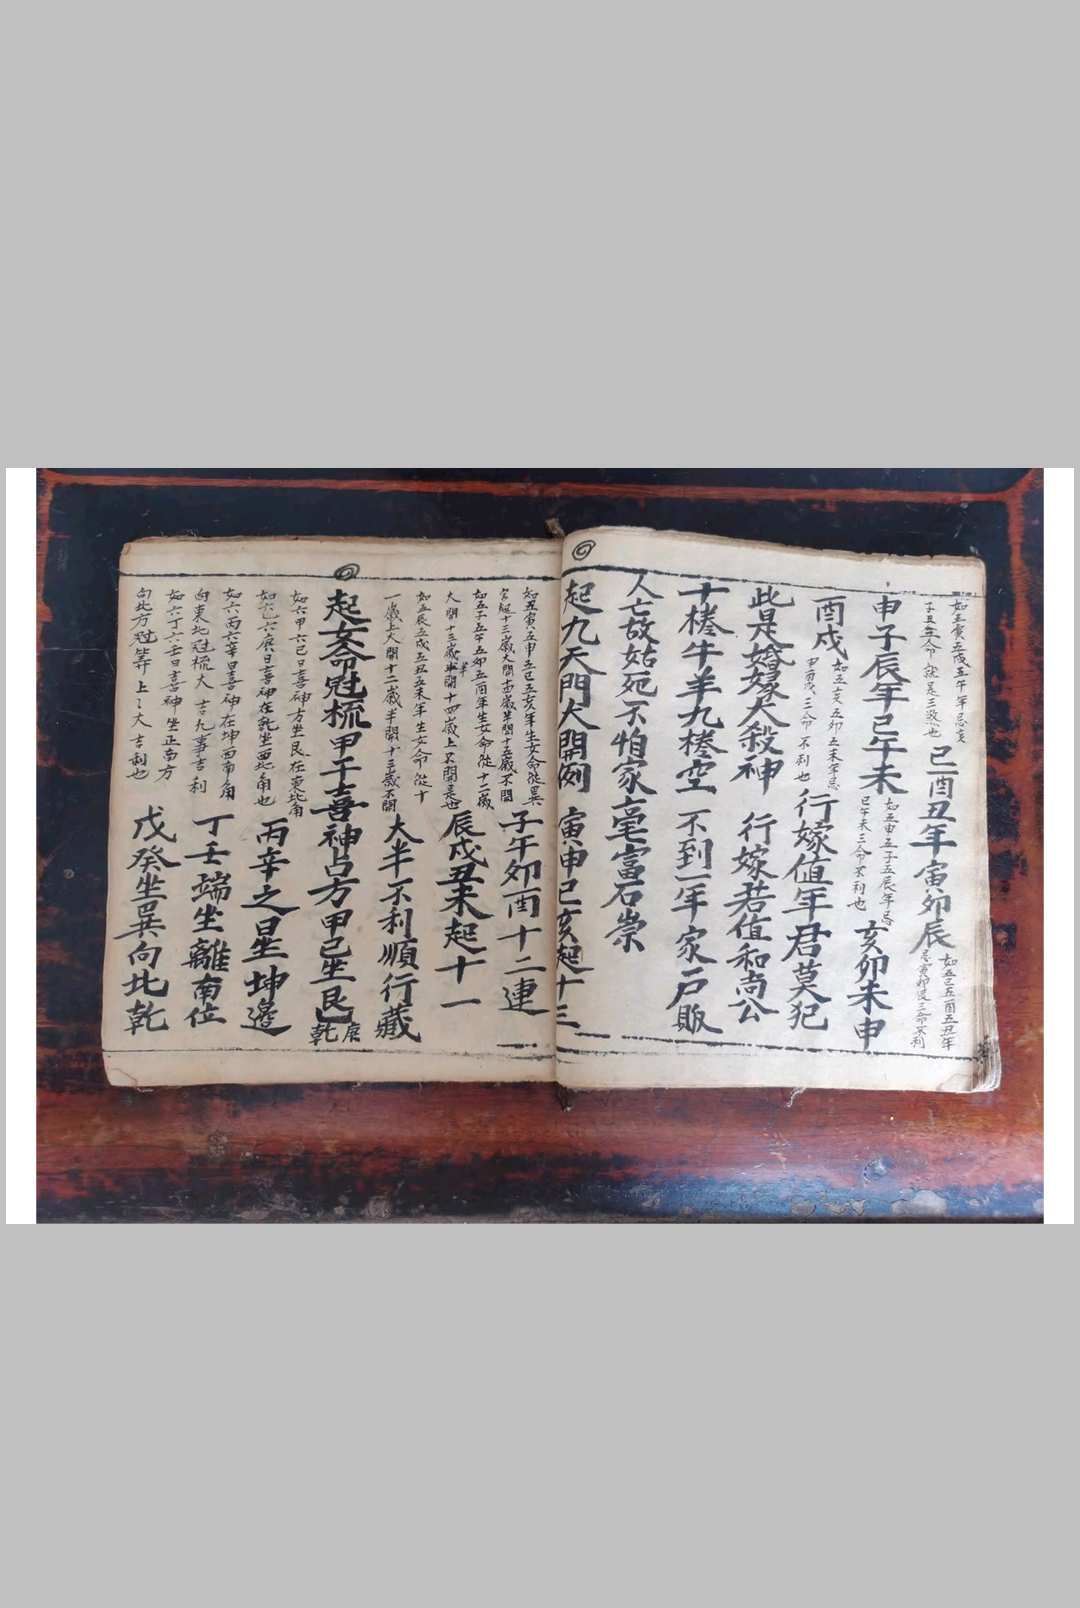 如五寅五戌五午年忌亥
子丑三命就是三煞也
巳酉丑年寅卯辰
如五巳五酉五丑年
忌寅卯辰三命不利
申子辰年巳午未
如五申五子五辰年忌
巳午未三命不利也
亥卯未申
酉戌
如五亥五卯五未年忌
申酉戌三命不利也
行嫁值年君莫犯
此是婚嫁大殺神 行嫁若值和尚公
十棬牛羊九棬空 不到一年家戸販
人亡故姑死不怕家毫富石崇
起九天門大開例 寅申巳亥起十三
如五寅五申五巳五亥年生女命從巽
宮起十三歲大開十四歲半開十五歲不開
子午卯酉十二連
如五子五午五卯五酉年生女命從十二歲
大開十三歲半開十四歲上不開是也
辰戌丑未起十一
如五辰五戌五丑五未年生女命從十
一歲上大開十二歲半開十三歲不開
大半不利順行藏
起女命冠梳甲子喜神占方甲己坐艮
庚
乾
如六甲六己日喜神方坐艮在東北角
如六乙六庚日喜神在乾坐西北角也
丙辛之日坐坤邊
如六丙六辛日喜神在坤西南角
向東北冠梳大吉凡事吉利
丁壬端坐離南位
如六丁六壬日喜神坐正南方
向北方冠笄上上大吉利也
戊癸坐巽向北乾